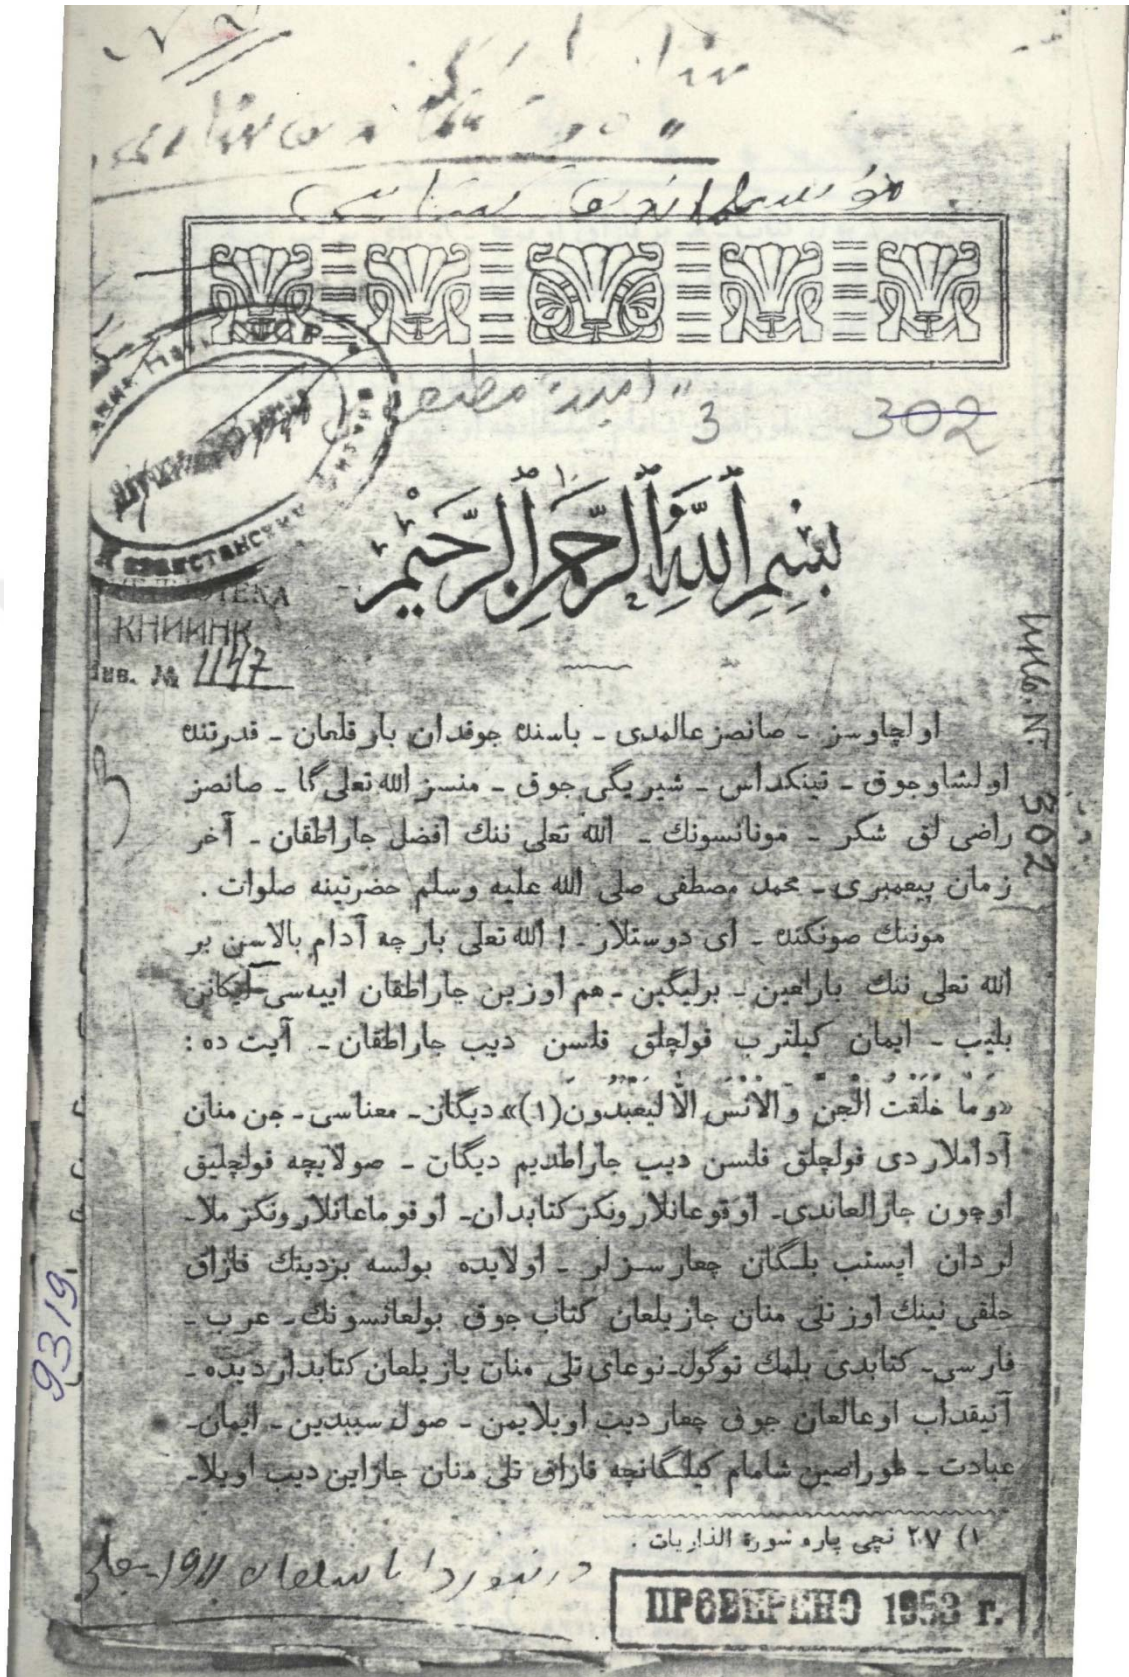 مۇسىلماندىق كىتابى
3
302
بِسْمِ اللَّهِ الرَّحْمَنِ الرَّحِيمِ
БИБЛИОТЕКА
КНИИНК
Инв. № 1147
Инв. №. 302
اولچاوسز ـ صانصز عالمدى ـ باسنده جوقدان بار قلعان ـ قدرتنده
اولشاوجوق ـ تينكداس ـ شيريگى جوق ـ منسز الله تعلى گا ـ صانصز
راضى لق شكر ـ مونانسونك ـ الله تعلى ننك افضل جاراطقان ـ آخر
زمان پيعمبرى ـ محمد مصطفى صلى الله عليه وسلم حضرتينه صلوات .
موننك صونكنده ـ اى دوستلار ـ ! الله تعلى بارچه آدام بالاسن بر
الله تعلى ننك بارلعين ـ برليگين ـ هم اوزين جاراطقان اييه‌سى ايكانن
بليب ـ ايمان كيلترب قولچلق قلسن ديب جاراطقان ـ آيت ده :
«وَمَا خَلَقْتُ الْجِنَّ وَالْاِنْسَ اِلَّا لِيَعْبُدُونَ (١)» ديگان ـ معناسى ـ جن منان
آداملاردى قولچلق قلسن ديب جاراطديم ديگان ـ صولايچه قولچليق
اوچون جارالعاندى ـ اوقوعانلارونكز كتابدان ـ اوقوماعانلارونكز ملا ـ
لردان ايستب بلگان چعارسزلر ـ اولايده بولسه بزديننك قازاق
حلقى نينك اوز تلى منان جازيلعان كتاب جوق بولعانسونك ـ عرب ـ
فارسى ـ كتابدى بلمك توگول ـ نوعاى تلى منان يازيلعان كتابداردیده ـ
آنيقداب اوعالعان جوق چعار ديب اويلايمن ـ صول سببدين ـ ايمان ـ
عبادت ـ طوراصين شامام كيلگانچه قازاق تلى منان جازاين ديب اويلا ـ
١) ٢٧ نچى پاره سورة الذاريات .
9319
ПРОВЕРЕНО 1953 г.